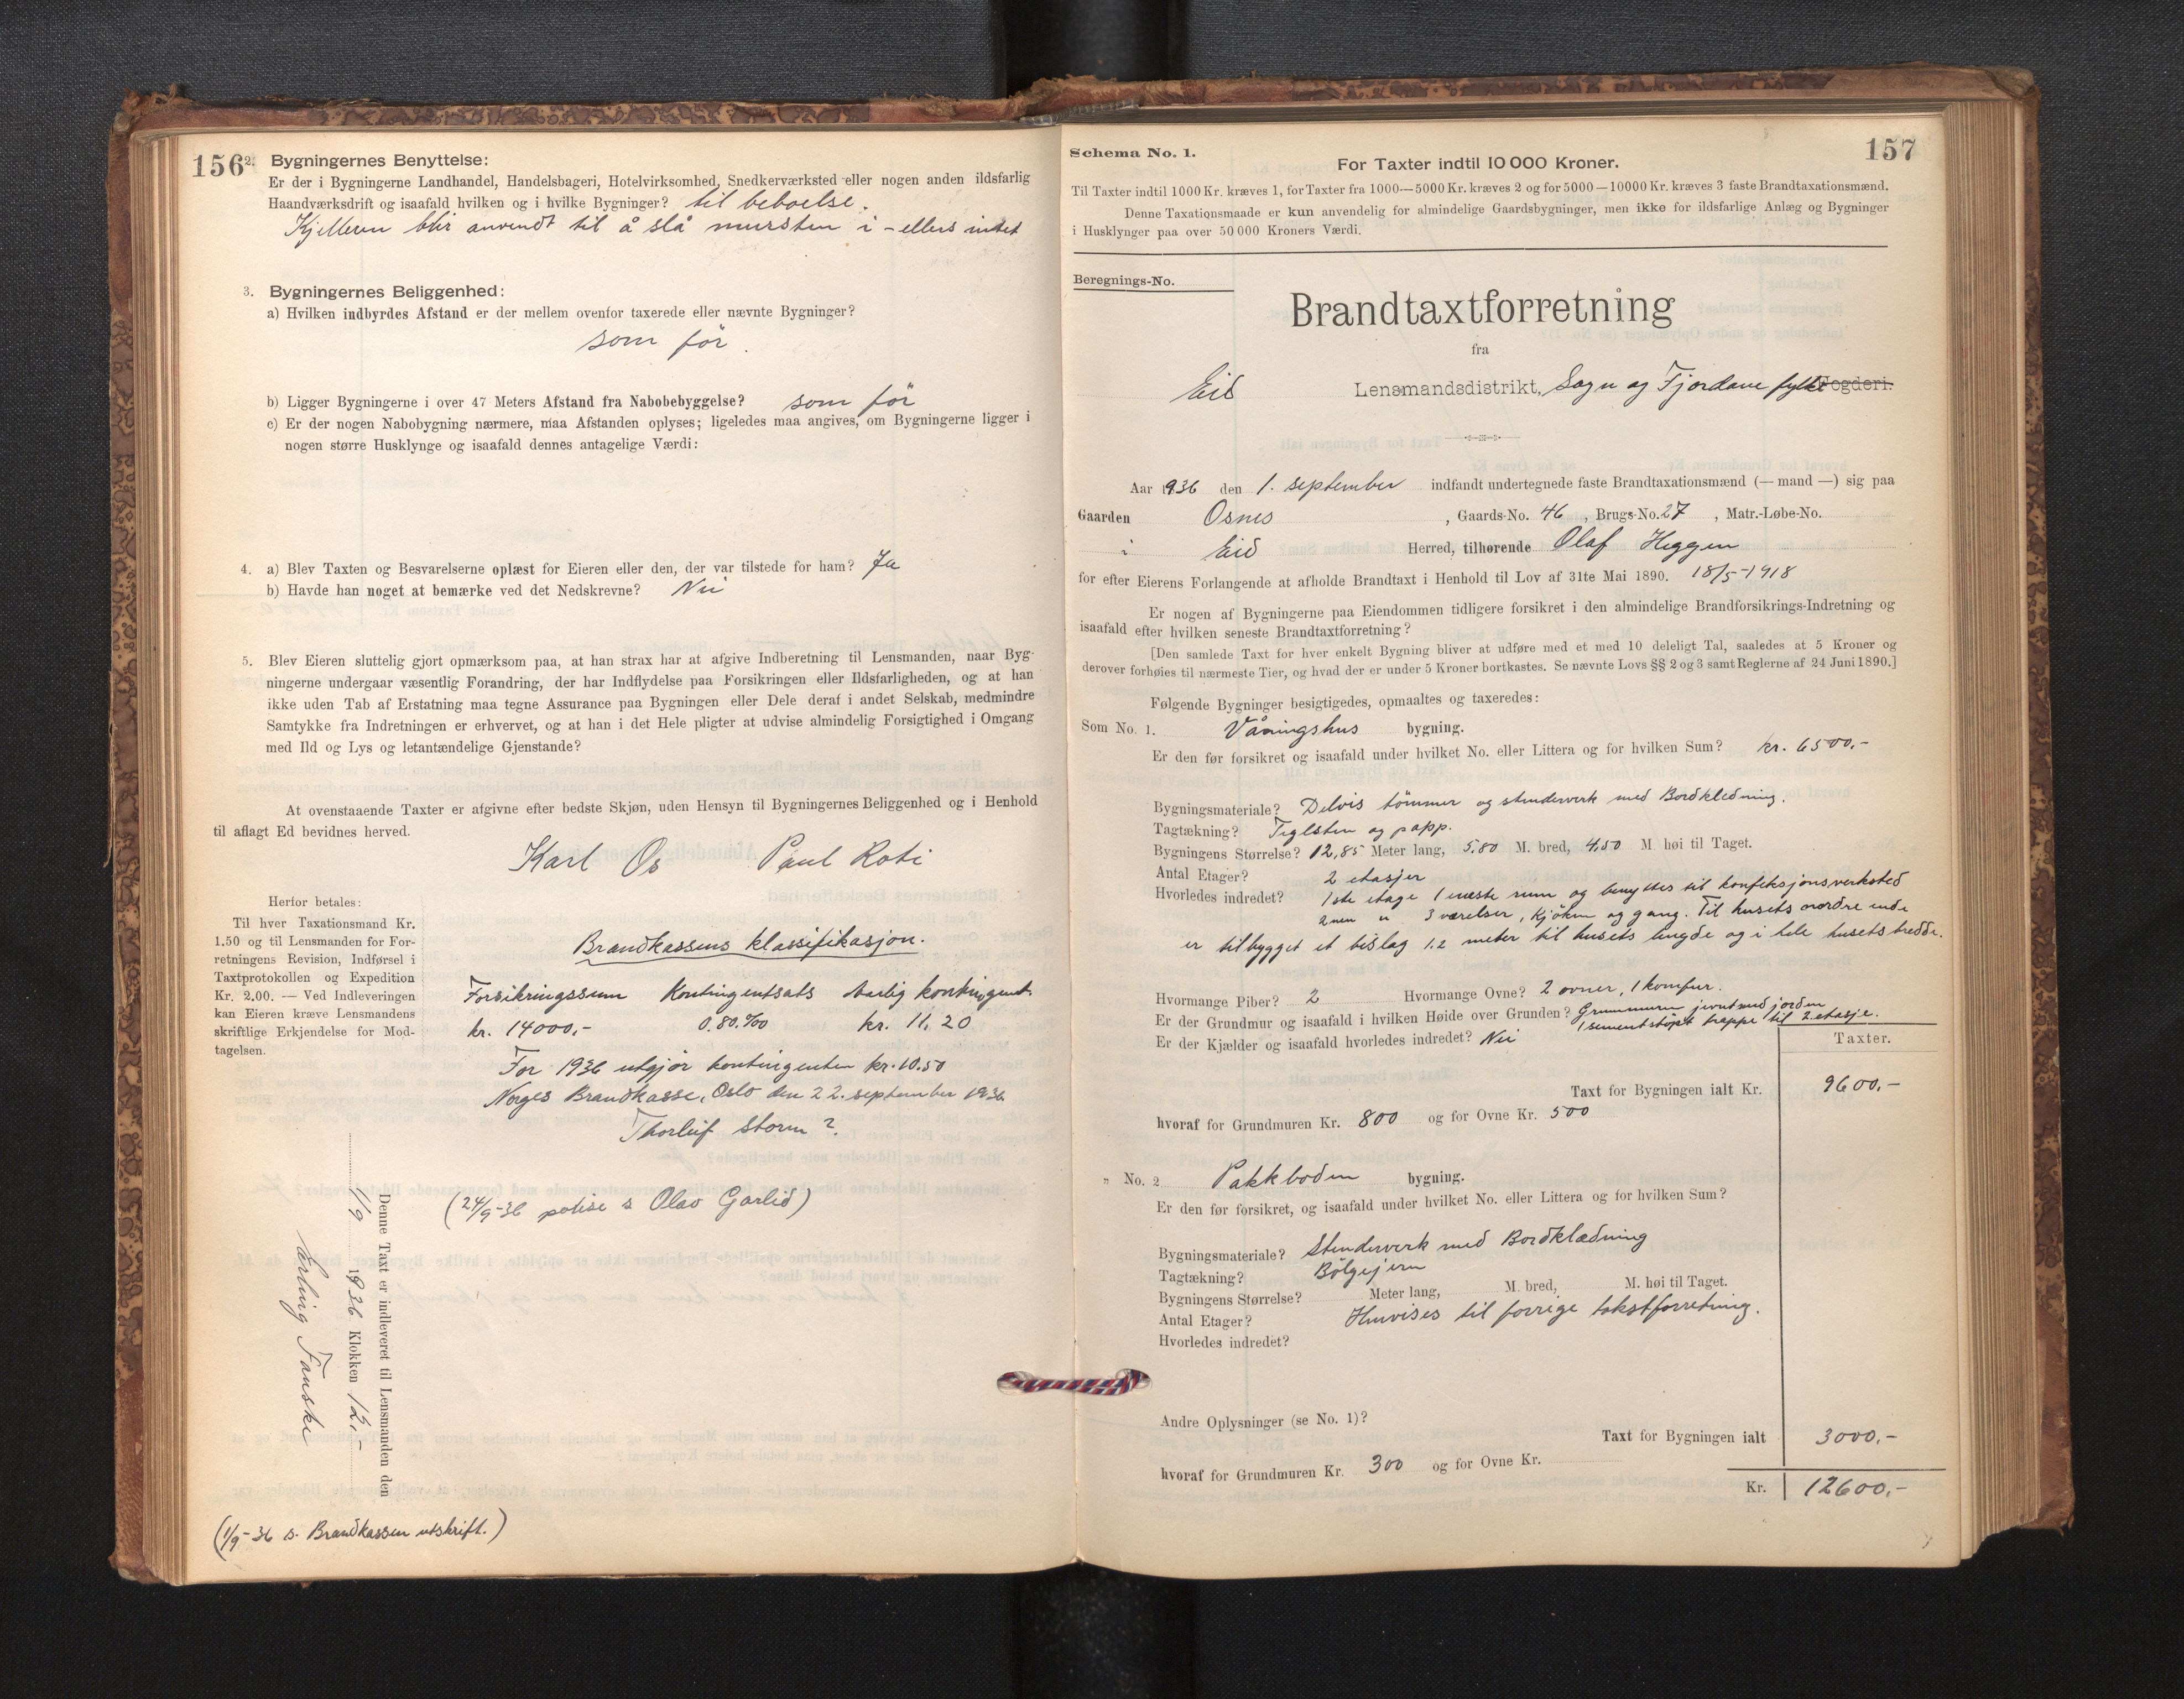 156
2. Bygningernes Benyttelse:
Er der i Bygningerne Landhandel, Handelsbageri, Hotelvirksomhed, Snedkerværksted eller nogen anden ildsfarlig
Haandværksdrift og isaafald hvilken og i hvilke Bygninger? til beboelse.
Kjelleren blir anvendt til å slå mursten i - ellers intet
3. Bygningernes Beliggenhed:
a) Hvilken indbyrdes Afstand er der mellem ovenfor taxerede eller nævnte Bygninger?
som før.
b) Ligger Bygningerne i over 47 Meters Afstand fra Nabobebyggelse? som før
c) Er der nogen Nabobygning nærmere, maa Afstanden oplyses; ligeledes maa angives, om Bygningerne ligger i
nogen større Husklynge og isaafald dennes antagelige Værdi:
4. a) Blev Taxten og Besvarelserne oplæst for Eieren eller den, der var tilstede for ham? Ja
b) Havde han noget at bemærke ved det Nedskrevne? Nei
5. Blev Eieren sluttelig gjort opmærksom paa, at han strax har at afgive Indberetning til Lensmanden, naar Byg-
ningerne undergaar væsentlig Forandring, der har Indflydelse paa Forsikringen eller Ildsfarligheden, og at han
ikke uden Tab af Erstatning maa tegne Assurance paa Bygningen eller Dele deraf i andet Selskab, medmindre
Samtykke fra Indretningen er erhvervet, og at han i det Hele pligter at udvise almindelig Forsigtighed i Omgang
med Ild og Lys og letantændelige Gjenstande?
At ovenstaaende Taxter er afgivne efter bedste Skjøn, uden Hensyn til Bygningernes Beliggenhed og i Henhold
til aflagt Ed bevidnes herved.
Karl Os Paul Roti
Herfor betales:
Til hver Taxationsmand Kr.
1.50 og til Lensmanden for For-
retningens Revision, Indførsel i
Taxtprotokollen og Expedition
Kr. 2.00. — Ved Indleveringen
kan Eieren kræve Lensmandens
skriftlige Erkjendelse for Mod-
tagelsen.
Brandkassens klassifikasjon.
Forsikringssum Kontingentsats Aarlig kontingent
kr. 14000,- 0.80.‰ kr. 11,20
For 1936 utgjør kontingenten kr. 10.50
Norges Brandkasse, Oslo den 22. september 1936
Thorleif Storm ?
(24/9-36 polise s Olav Garlid)
Denne Taxt er indleveret til Lensmanden den
1/9 1936 Klokken 12,-
Erling Fauske
(1/9-36 s. Brandkassen utskrift.)
157
Schema No. 1.
For Taxter indtil 10 000 Kroner.
Til Taxter indtil 1000 Kr. kræves 1, for Taxter fra 1000—5000 Kr. kræves 2 og for 5000—10000 Kr. kræves 3 faste Brandtaxationsmænd.
Denne Taxationsmaade er kun anvendelig for almindelige Gaardsbygninger, men ikke for ildsfarlige Anlæg og Bygninger
i Husklynger paa over 50 000 Kroners Værdi.
Beregnings-No.
Brandtaxtforretning
fra
Eid Lensmandsdistrikt, Sogn og Fjordane fylke Fogderi.
Aar 1936 den 1. september indfandt undertegnede faste Brandtaxationsmænd (— mand —) sig paa
Gaarden Osnes, Gaards-No. 46, Brugs-No. 27, Matr.-Løbe-No.
i Eid Herred, tilhørende Olaf Heggen
for efter Eierens Forlangende at afholde Brandtaxt i Henhold til Lov af 31te Mai 1890. 18/5-1918
Er nogen af Bygningerne paa Eiendommen tidligere forsikret i den almindelige Brandforsikrings-Indretning og
isaafald efter hvilken seneste Brandtaxtforretning?
[Den samlede Taxt for hver enkelt Bygning bliver at udføre med et med 10 deleligt Tal, saaledes at 5 Kroner og
derover forhøies til nærmeste Tier, og hvad der er under 5 Kroner bortkastes. Se nævnte Lovs §§ 2 og 3 samt Reglerne af 24 Juni 1890.]
Følgende Bygninger besigtigedes, opmaaltes og taxeredes:
Som No. 1. Våningshus bygning.
Er den før forsikret og isaafald under hvilket No. eller Littera og for hvilken Sum? kr. 6500,-
Bygningsmateriale? Delvis tømmer og stenderverk med Bordkledning.
Tagtækning? Teglsten og papp.
Bygningens Størrelse? 12,85 Meter lang, 5,80 M. bred, 4,50 M. høi til Taget.
Antal Etager? 2 etasjer
Hvorledes indredet? 1ste etage 1 neste rum og benyttes til konfeksjonsverksted
2nen " 3 værelser, kjøken og gang. Til husets nordre ende
er tilbygget et bislag 1.2 meter til husets lengde og i hele husets bredde.
Hvormange Piber? 2 Hvormange Ovne? 2 ovner, 1 komfur.
Er der Grundmur og isaafald i hvilken Høide over Grunden? Grunmuren jevnt med jorden
1 sementstøpt trappe til 2 etasje.
Er der Kjælder og isaafald hvorledes indredet? Nei
Taxter.
Taxt for Bygningen ialt Kr. 9600,-
hvoraf for Grundmuren Kr. 800 og for Ovne Kr. 500
„ No. 2 Pakkboden bygning.
Er den før forsikret, og isaafald under hvilket No. eller Littera og for hvilken Sum?
Bygningsmateriale? Stenderverk med Bordklædning
Tagtækning? Bølgejern
Bygningens Størrelse? Meter lang, M. bred, M. høi til Taget.
Antal Etager? Henvises til forrige takstforretning.
Hvorledes indredet?
Andre Oplysninger (se No. 1)?
Taxt for Bygningen ialt 3000,-
hvoraf for Grundmuren Kr. 300 og for Ovne Kr.
Kr. 12600,-